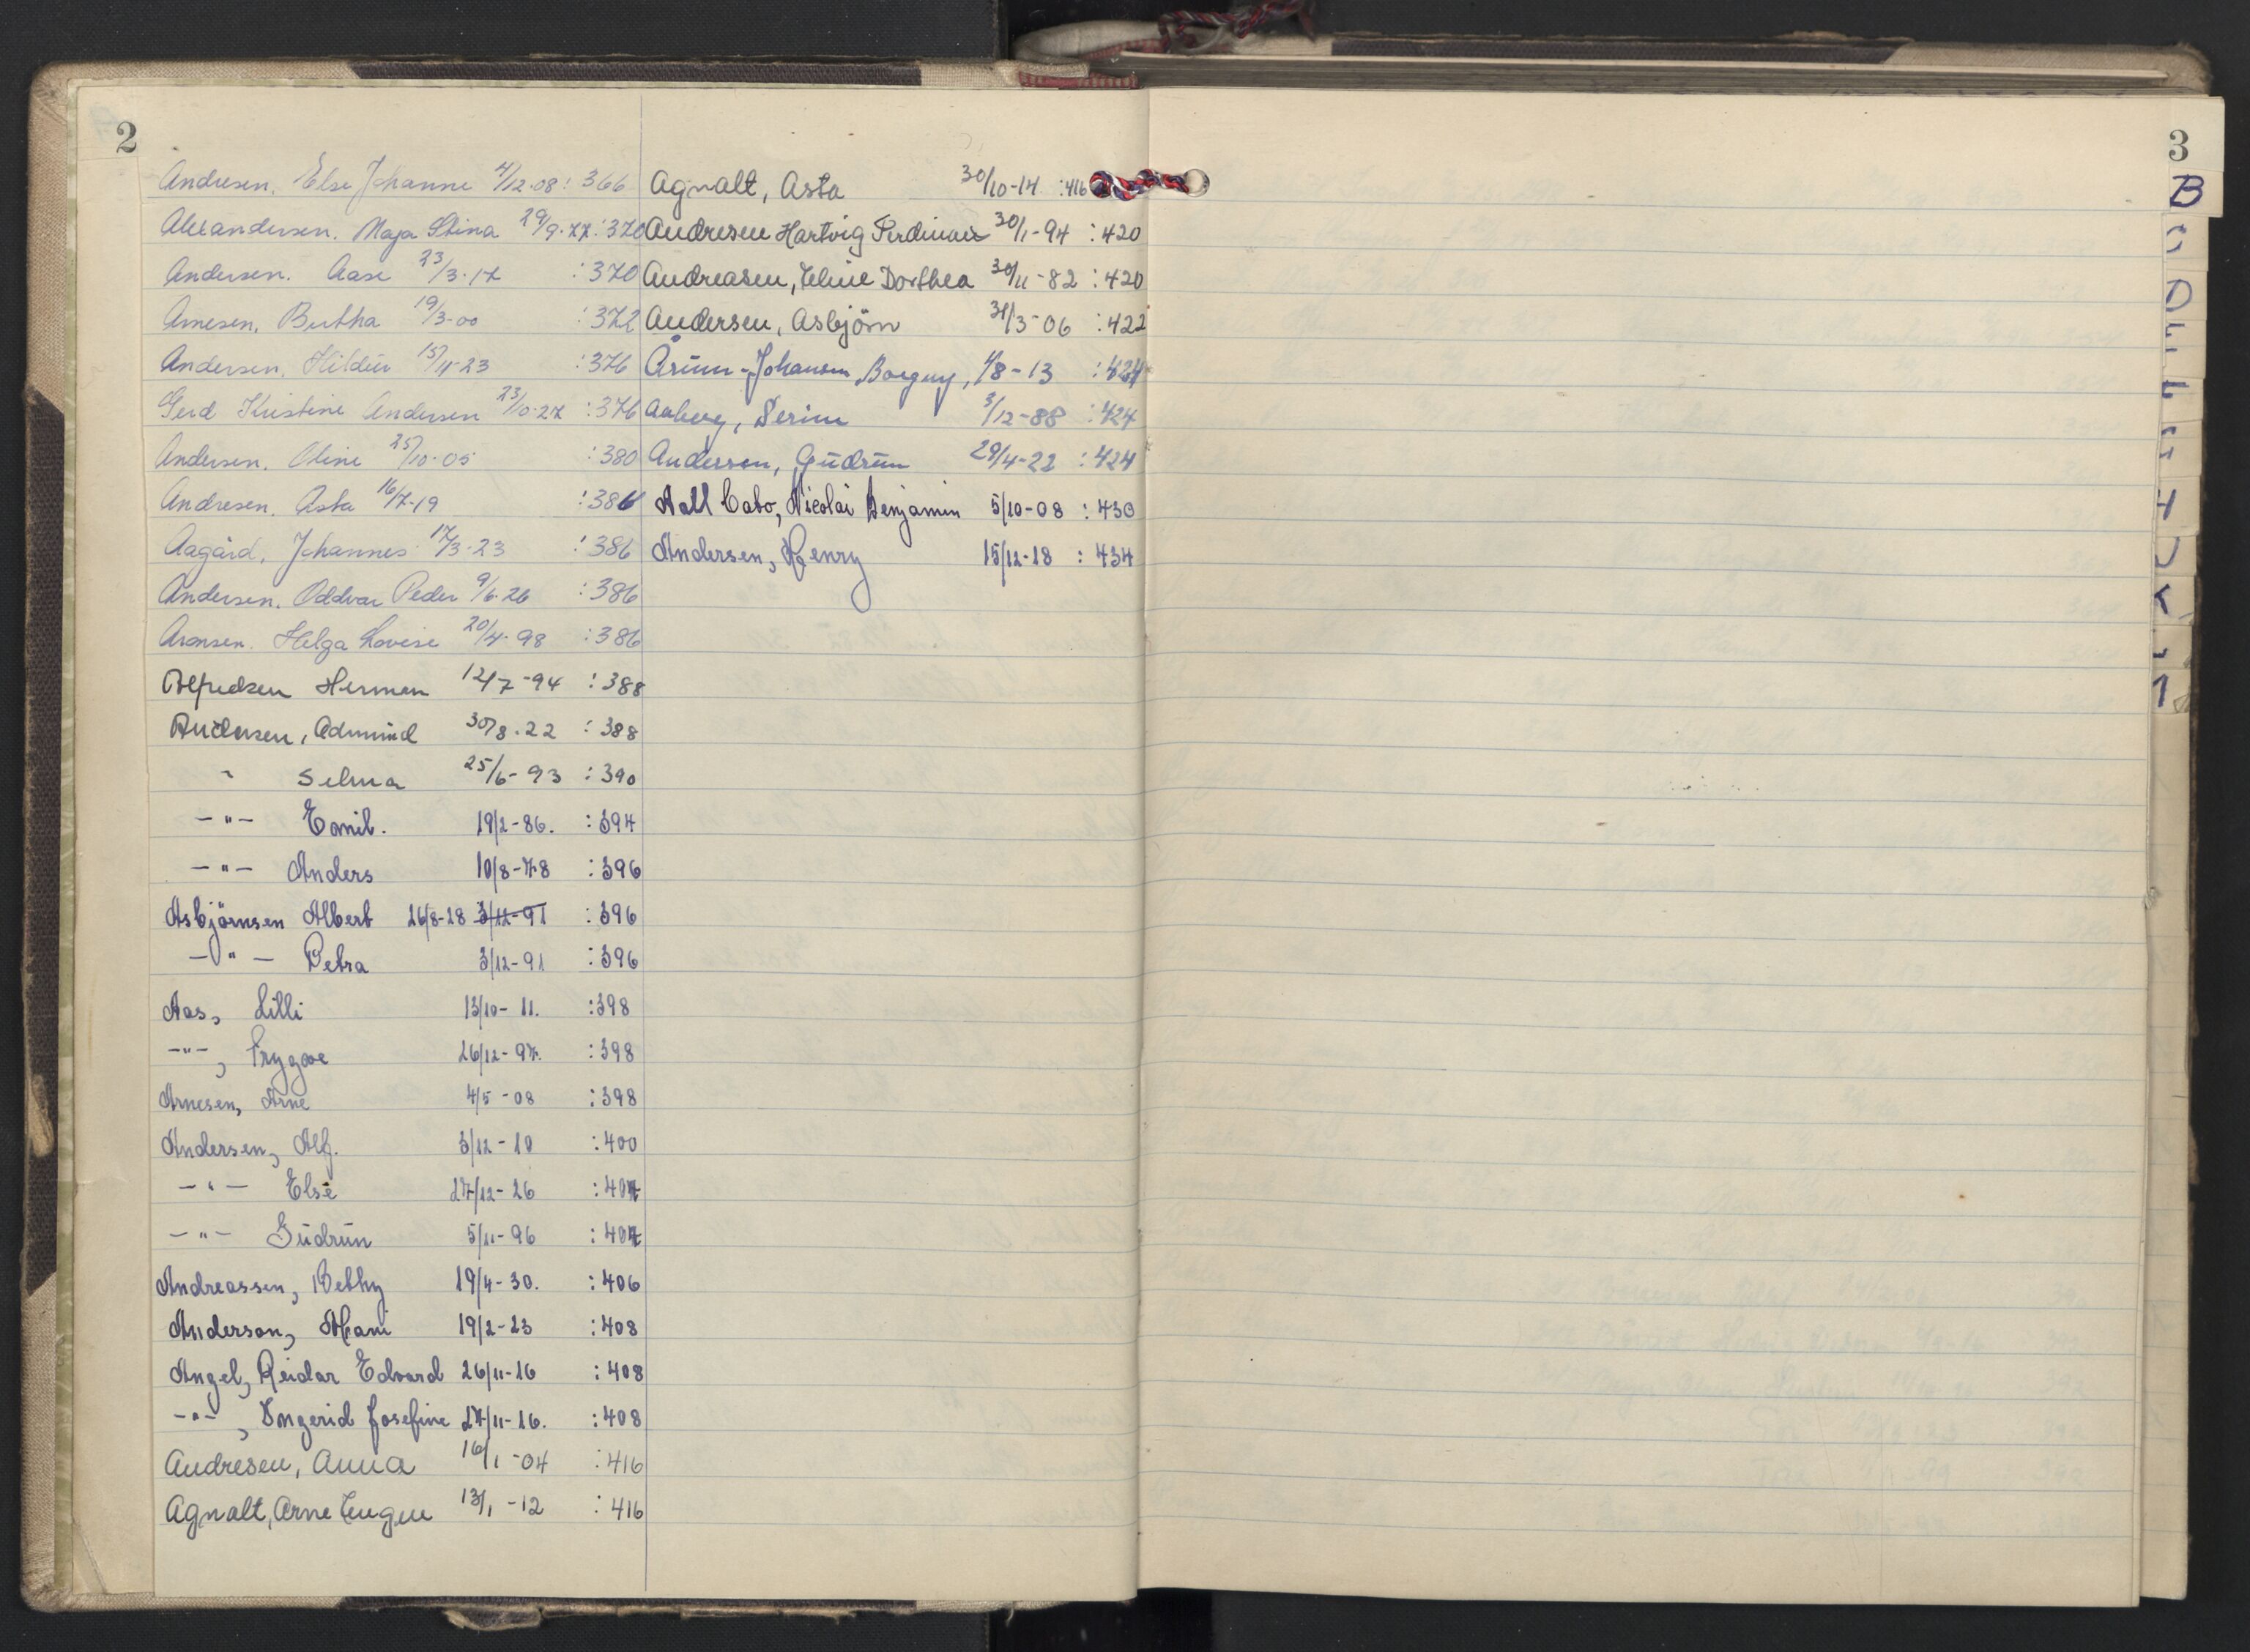 2
Andresen, Else Johanne 4/12-08 : 366
Alexandersen, Maja Stina 29/9-77 : 370
Andersen, Aase 23/3-17 : 370
Arnesen, Bertha 19/3-00 : 372
Andersen, Hildur 15/11-23 : 376
Gerd Kristine Andersen 23/10-27 : 376
Andersen, Oline 25/10-05 : 380
Andresen, Asta 16/7-19 : 386
Aagård, Johannes 17/3-23 : 386
Andersen, Oddvar Peder 9/6-26 : 386
Aronsen, Helga Lovise 20/4-98 : 386
Alfredsen Herman 12/7-94 : 388
Andersen, Admund 30/8-22 : 388
" Selma 25/6-93 : 390
-"- Emil. 19/2-86. : 394
-"- Anders 10/8-78 : 396
Asbjörnsen Albert 26/8-18 3/12-91 : 396
-"- Petra 3/12-91 : 396
Aas, Lilli 13/10-11. : 398
-"-, Trygve 26/12-97. : 398
Arnesen, Arne 4/5-08 : 398
Andersen, Alf. 3/12-10 : 400
-"- Else 27/12-26 : 404
-"- Gudrun 5/11-96 : 404
Andreassen, Bethy 19/4-30. : 406
Anderson, Mani 19/2-23 : 408
Angel, Reidar Edvard 26/11-16 : 408
-"-, Ingerid Josefine 27/11-16. : 408
Andresen, Anna 16/1-04 : 416
Agnalt, Arne Eugen 13/1-12 : 416
Agnalt, Asta 30/10-14 : 416
Andresen Hartvig Ferdinan 30/1-94 : 420
Andreasen, Eline Dorthea 30/11-82 : 420
Andersen, Asbjörn 31/3-06 : 422
Årum-Johansen, Borgny, 1/8-13 : 424
Aaberg, Serine 3/12-88 : 424
Anderson, Gudrun 29/4-22 : 424
Aall Cabo, Nicolai Benjamin 5/10-08 : 430
Andersen, Henry 15/12-18 : 434
3
B
D
E
F
H
J
K